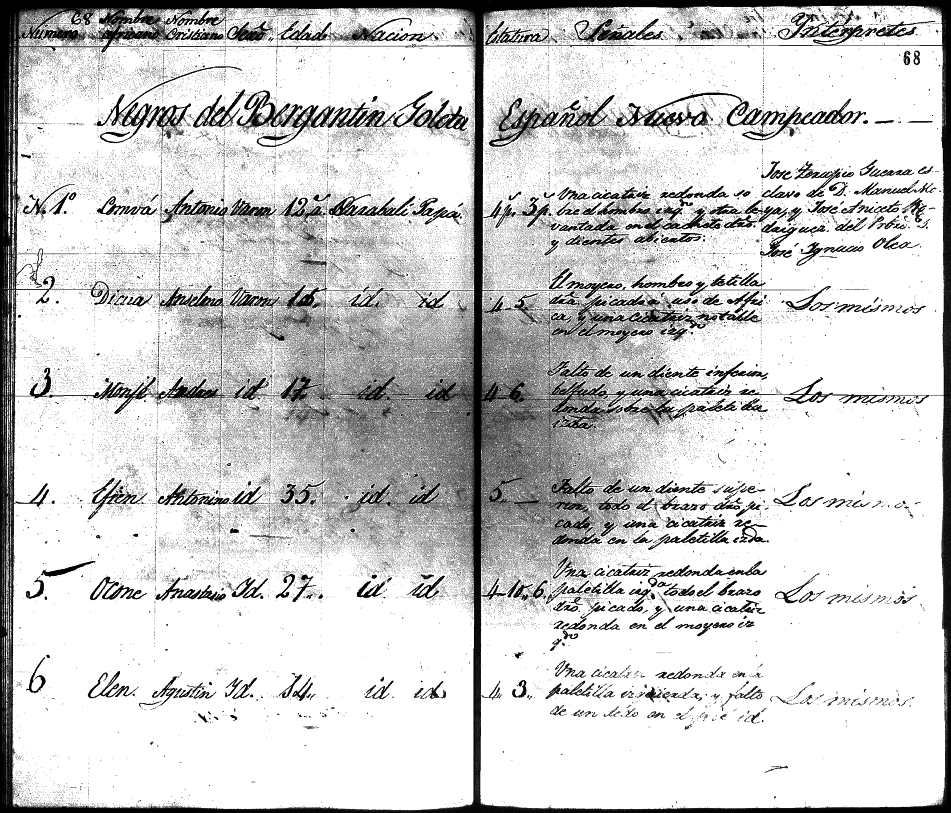 68
Numero Nombre africano Nombre Cristiano Sexo Edad Nacion Estatura Señales Ynterpretes
68
Negros del Bergantin Goleta Español Nuevo Campeador.
N. 1º Comvá Antonio Varon 12 a. Carabali Papá. 4 p. 3 p.
Una cicatriz redonda so
bre el hombro izqº y otra le
vantada en el cachete dro.
y dientes abiertos.
José Zerapio Guerra es
clavo de D. Manuel
ya, y José Aniceto Ro
driguez, del
José Ygnacio Olea.
2. Anselmo Varon 15. id. id 4 5.
El moyero, hombro y tetilla
dra. picado a uso de Afri
ca, y una cicatriz notable
en el moyero izqdo
Los mismos
3. Andres id 17. id. id 4 6.
Falto de un diente inferior,
belfudo, y una cicatriz re
donda sobre la paletilla
izda.
Los mismos
4. Antonino id 35. id. id 5.
Falto de un diente supe-
rior, todo el brazo dro. pi
cado, y una cicatriz re
donda en la paletilla izda.
Los mismo
5. Ocone Anastasio Id. 27. id id 4 10. 6.
Una cicatriz redonda en la
paletilla izqda todo el brazo
dro. picado, y una cicatriz
redonda en el moyero iz
qdo
Los mismos
6 Elen Agustin Id. 14. id id 4 3.
Una cicatriz redonda en la
paletilla izquierda, y falto
de un dedo en el pié id.
Los mismos.